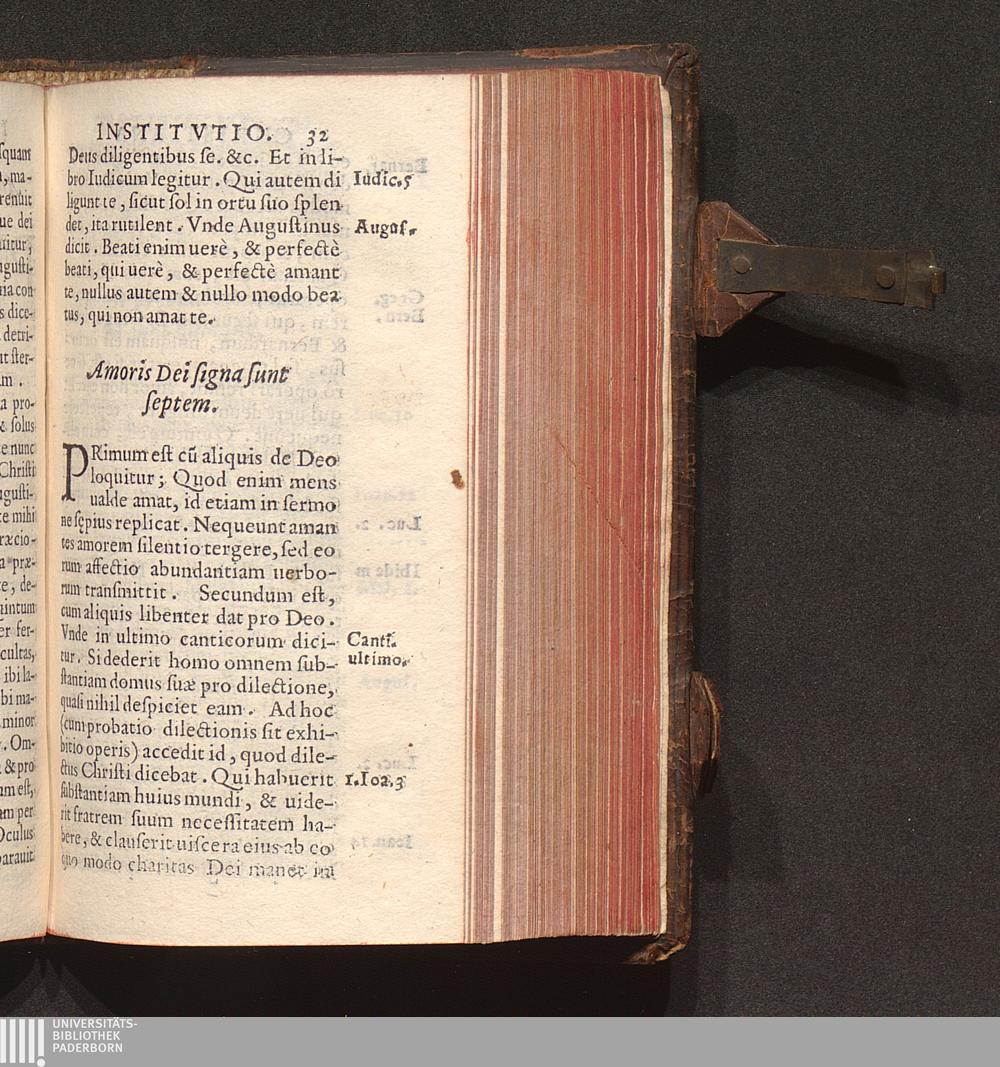 INSTITVTIO. 32
Deus diligentibus ſe. &c. Et in li-
bro Iudicum legitur. Qui autem di
ligunt te, ſicut ſol in ortu ſuo ſplen
det, ita rutilent. Vnde Auguſtinus
dicit. Beati enim uerè, & perfectè
beati, qui uerè, & perfectè amant
te, nullus autem & nullo modo bea
tus, qui non amat te.
Iudic.5
Auguſ.
Amoris Dei ſigna ſunt
ſeptem.
PRimum eſt cũ aliquis de Deo
loquitur; Quod enim mens
ualde amat, id etiam in ſermo
ne ſępius replicat. Nequeunt aman
tes amorem ſilentio tergere, ſed eo
rum affectio abundantiam uerbo-
rum tranſmittit. Secundum eſt,
cum aliquis libenter dat pro Deo.
Vnde in ultimo canticorum dici-
tur. Si dederit homo omnem ſub-
ſtantiam domus ſuæ pro dilectione,
quaſi nihil deſpiciet eam. Ad hoc
(cum probatio dilectionis ſit exhi-
bitio operis) accedit id, quod dile-
ctus Chriſti dicebat. Qui habuerit
ſubſtantiam huius mundi, & uide-
rit fratrem ſuum neceſſitatem ha-
bere, & clauſerit uiſcera eius ab eo
quo modo charitas Dei manet in
Canti.
ultimo.
1.Ioa.3
ſquam
, ma-
renuit
ue dei
uitur,
guſti-
na con
s dice-
detri-
ut ſter-
m.
a pro-
& ſolus
e nunc
Chriſti
guſti-
te mihi
ræcio-
a præ-
te, de-
uintum
er fer-
cultas,
ibi la-
bi ma-
minor
. Om-
& pro
um eſt,
am per
Oculus
parauit
UNIVERSITÄTS-
BIBLIOTHEK
PADERBORN